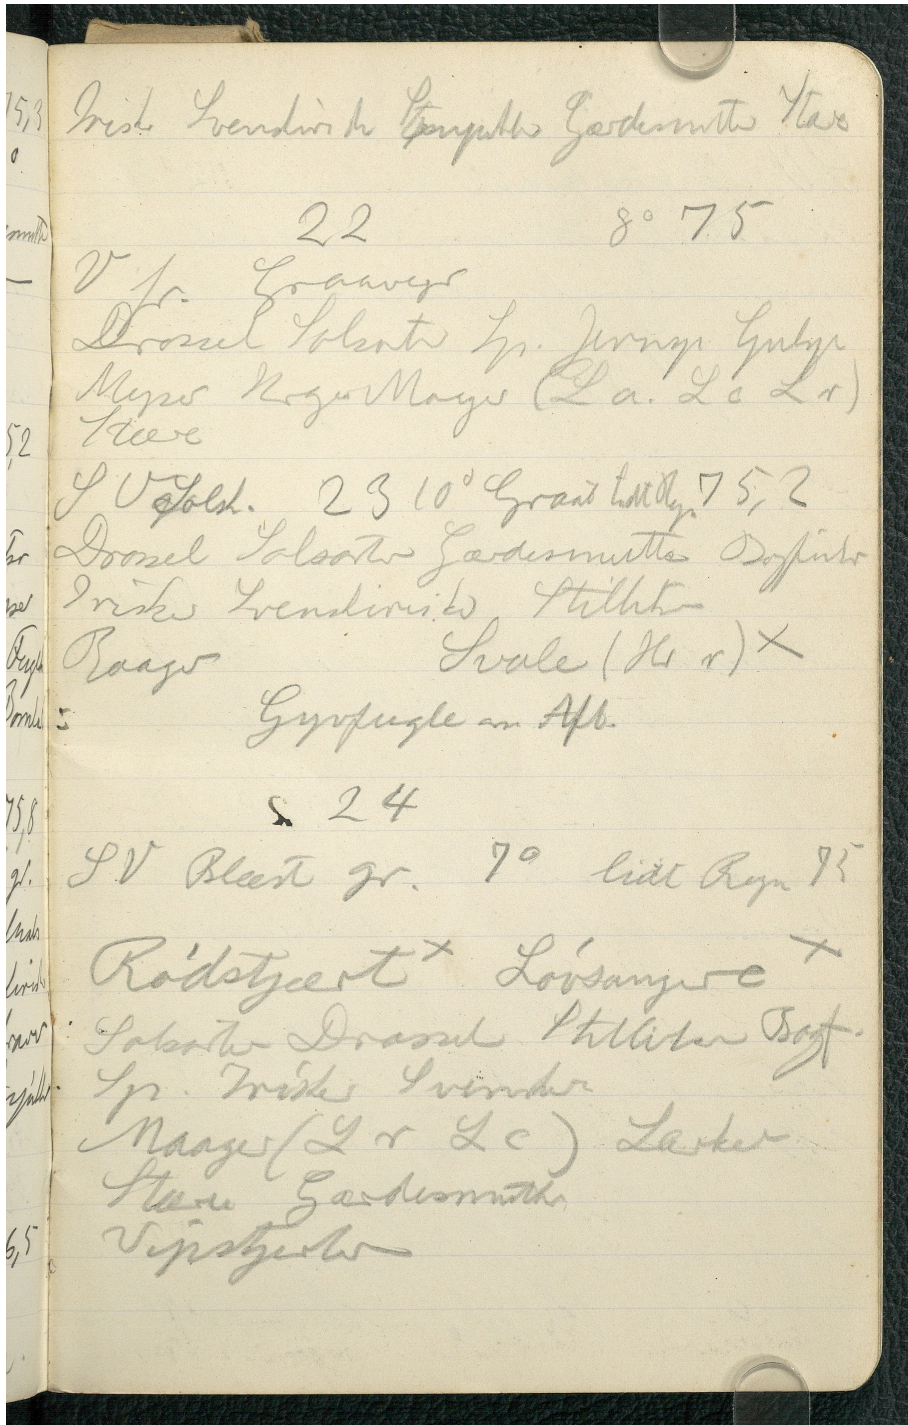 Irisk Svendirisk Stenpikker Gærdesmutte Stær
22 8° 75
V fr. Graavejr
Drossel Solsorte Sp. Jernsp Gulsp
Mejser Krager Maager (L a. L c L r)
Stære
S V Solsk. 23 10° Graat lidt Rgn 75,2
Drossel Solsorte Gærdesmutte Bogfinker
Iriske Svendiriske Stillitse
Raager Svale (Hr r) X
Gyvfugle Afb.
S. 24
S V Blæst gr. 7° lidt Regn 75
Rødstjært X Løvsangere X
Solsorte Drossel Stillitser Bogf.
Sp. Iriske Svendir
Maager (L r L c) Lærker
Stære Gærdesmutte
Vipstjerter